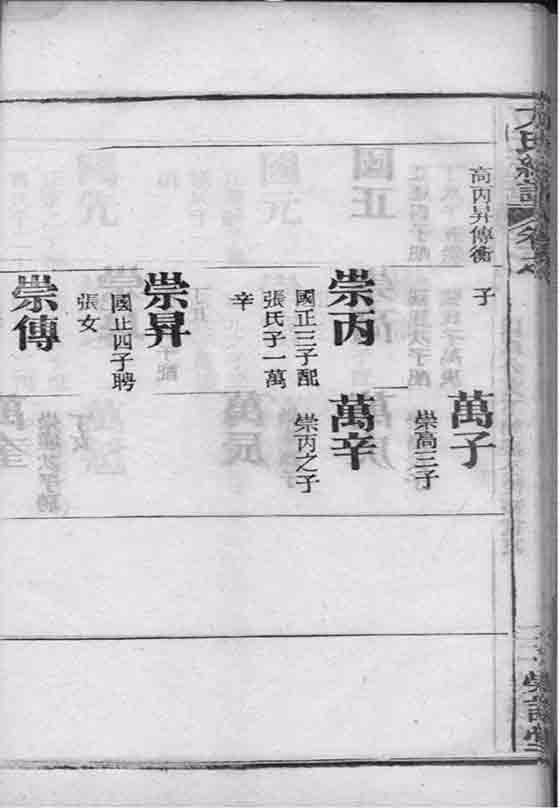 高丙昇傳衡
子
萬子
崇高三子
崇丙
國正三子配
張氏子一萬
辛
萬辛
崇丙之子
崇昇
國正四子聘
張女
崇傳